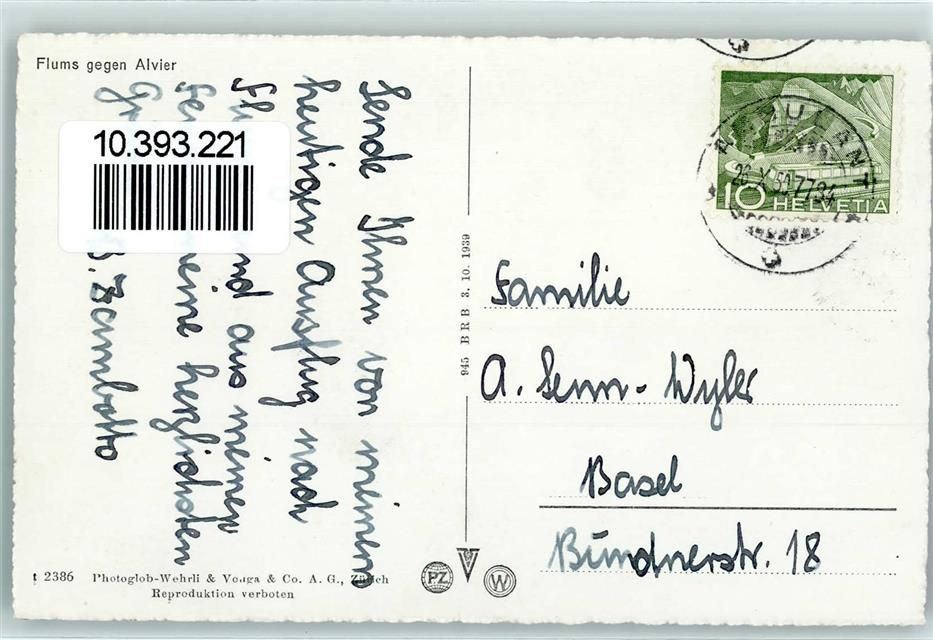 Flums gegen Alvier
10.393.221
Sende Ihnen von meinem
heutigen Ausflug nach
Fl und aus meinen
Fe meine herzlichsten
G
B. Zambotto
945 BRB 3. 10. 1939
10 HELVETIA
Familie
A. Senn-Wyler
Basel
Bündnerstr. 18
t 2386 Photoglob-Wehrli & Vouga & Co. A. G., Zürich
Reproduktion verboten
PZ
W